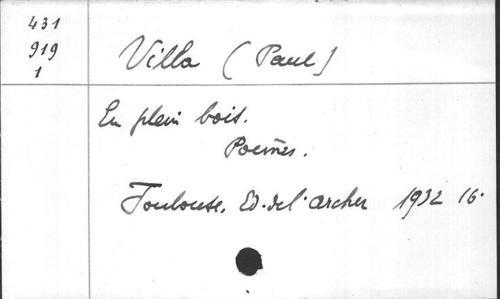 431
919
1
Villa (Paul)
En plein bois.
Poèmes.
Toulouse, Ed. de l'archer 1932 16°